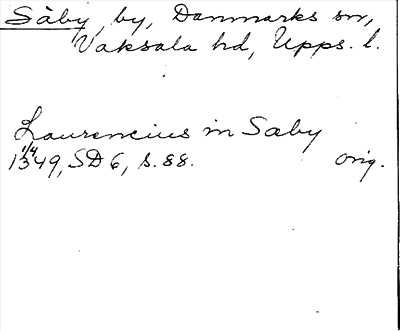 Säby, by, Danmarks sn,
Vaksala hd, Upps. l.
Laurencius in Sæby
1/4
1349, SD 6, s. 88. orig.